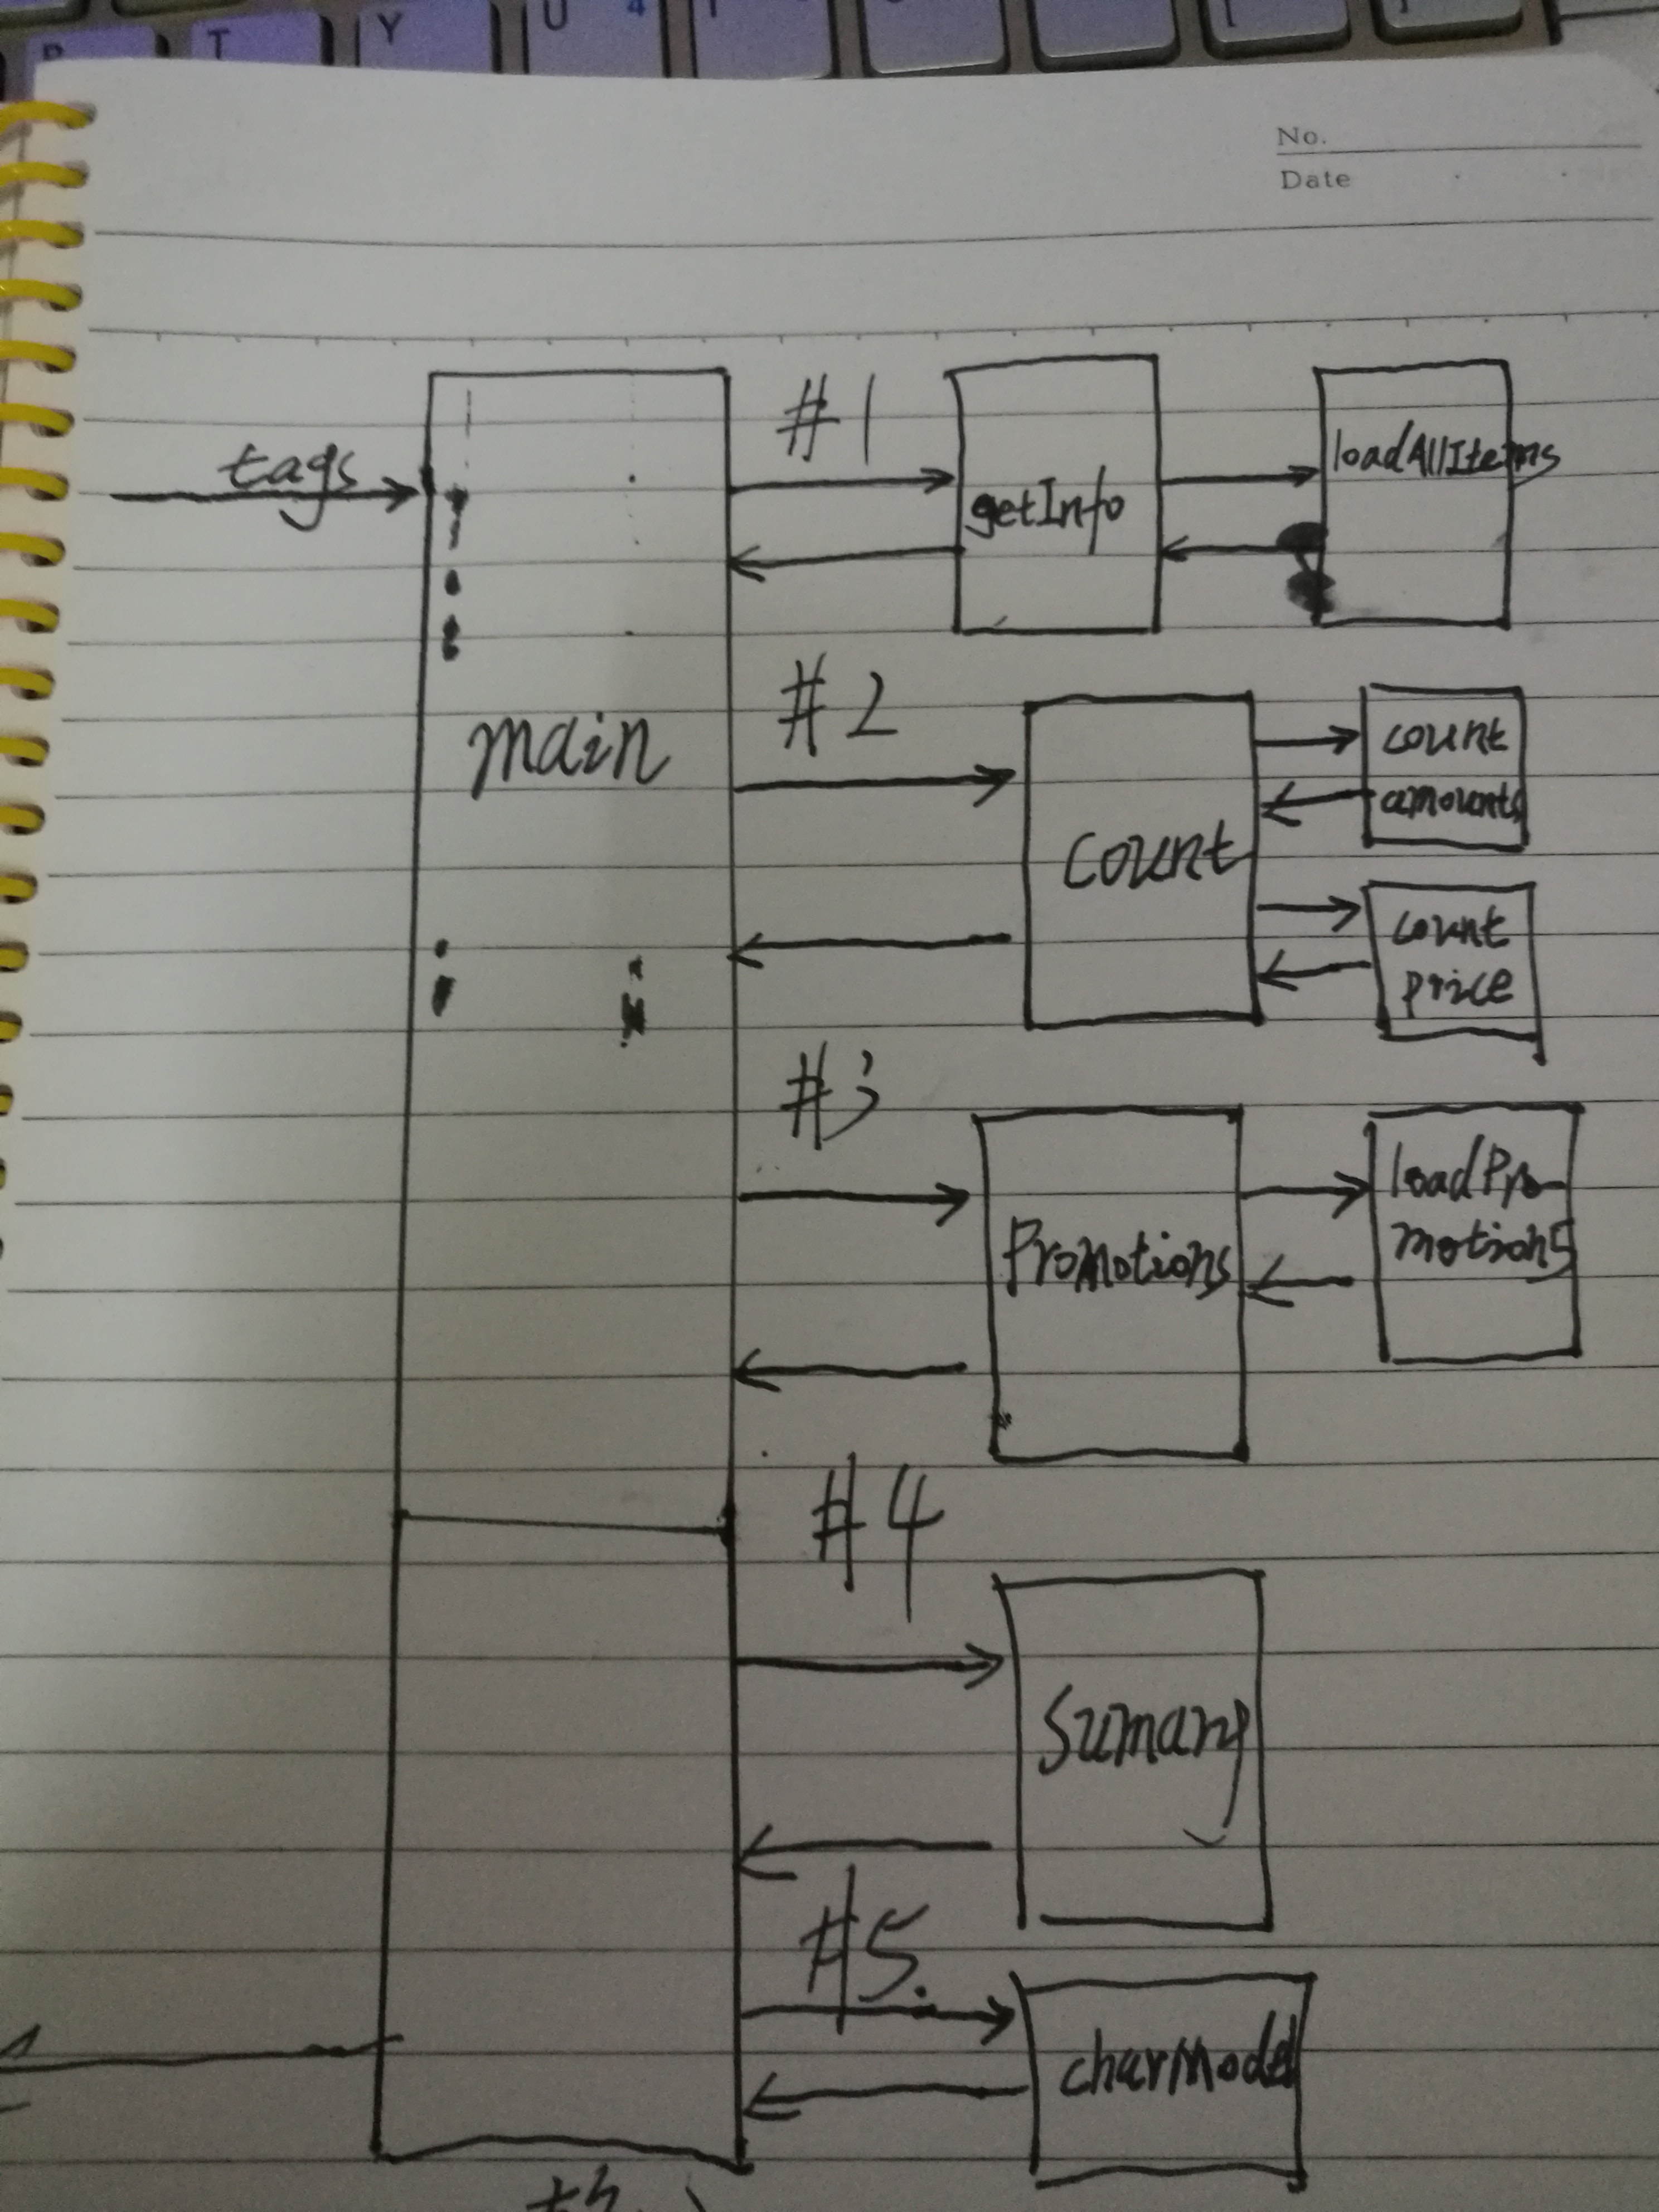 T
Y
U
4
No.
Date
tags
#1
getInfo
loadAllItems
main
#2
count
count
amounts
count
price
#3
Promotions
loadPro
motions
#4
Sumary
#5.
charModel